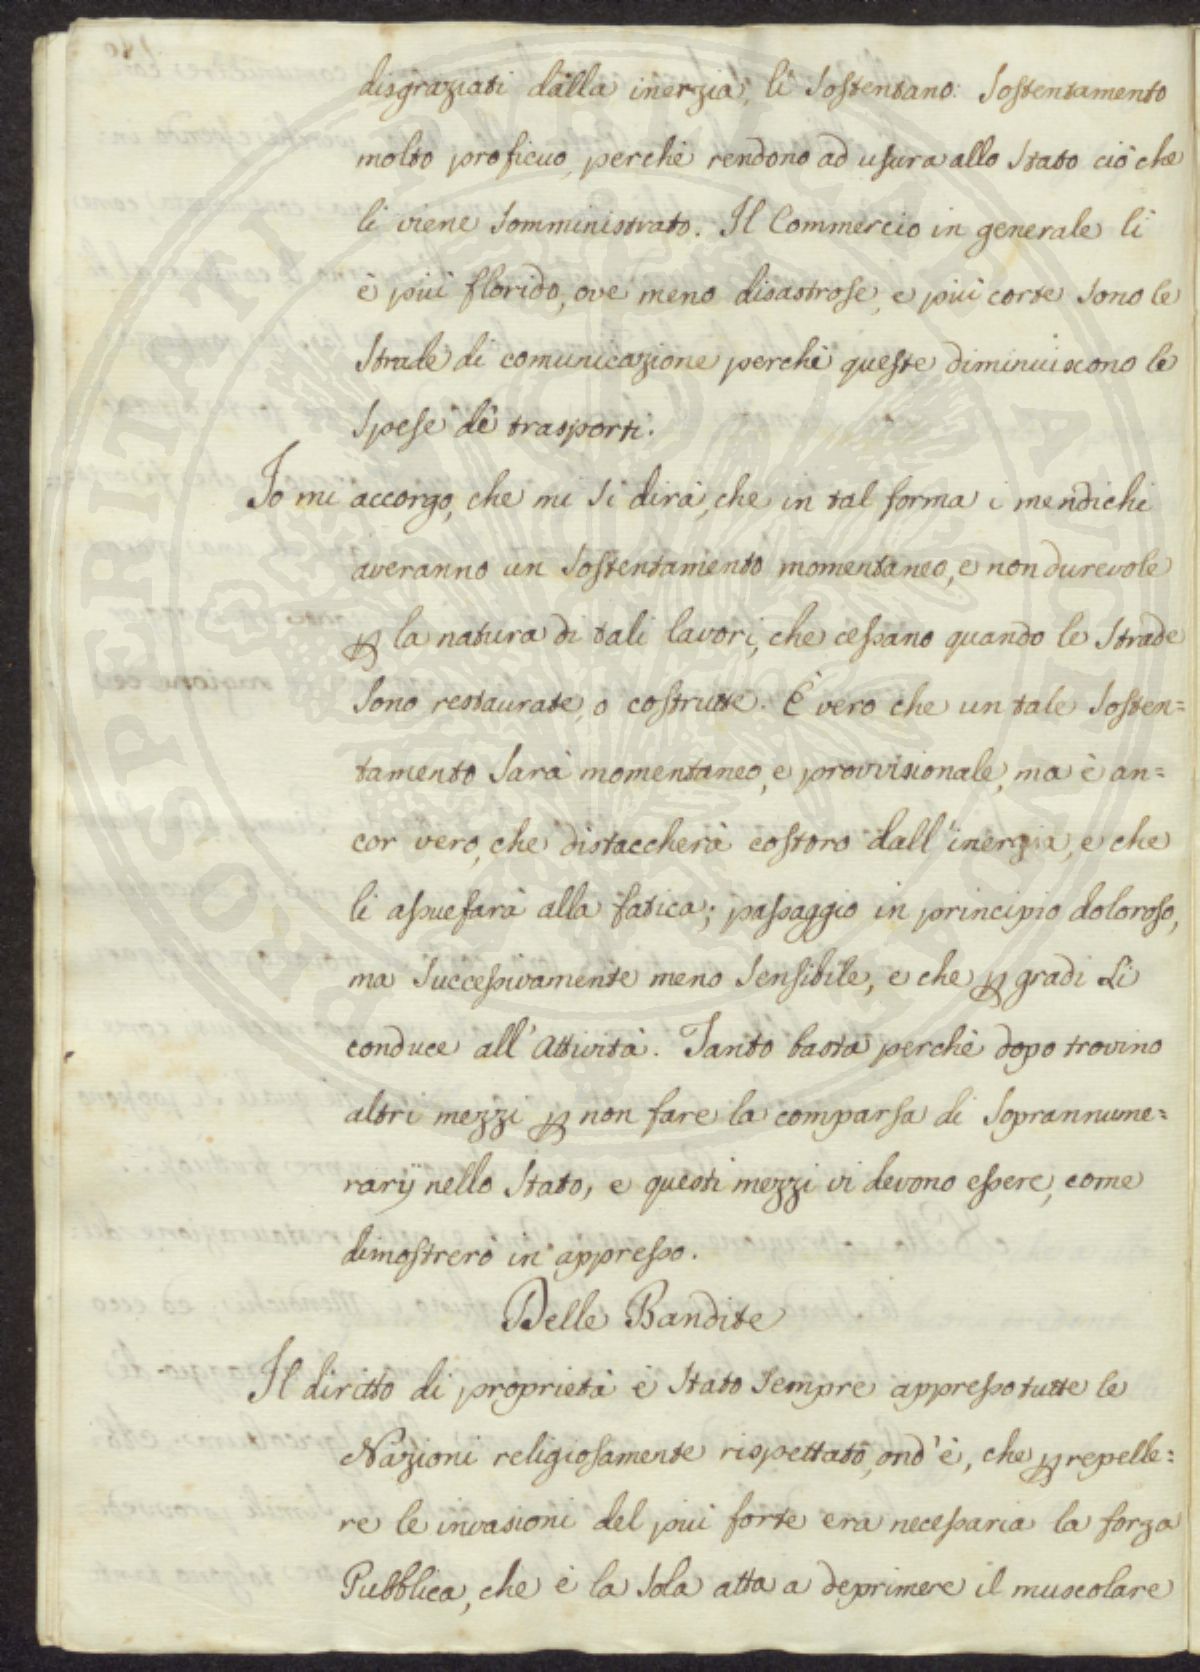 disgraziati dalla inerzia, li sostentano: Sostentamento
molto proficuo, perchè rendono ad usura allo Stato ciò che
li viene somministrato. Il Commercio in generale li
è più florido, ove meno disastrose, e più corte sono le
Strade di comunicazione perchè queste diminuiscono le
spese dè trasporti.
Io mi accorgo, che mi si dirà, che in tal forma i mendichi
averanno un sostentamento momentaneo, e non durevole
ꝑ la natura di tali lavori, che cessano quando le Strade
sono restaurate, o costrutte. È vero che un tale sosten=
tamento sarà momentaneo, e provvisionale, ma è an=
cor vero, che distaccherà costoro dall'inerzia, e che
li assuefarà alla fatica; passaggio in principio doloroso,
ma successivamente meno sensibile, e che ꝑ gradi Li
conduce all'Attività. Tanto basta perchè dopo trovino
altri mezzi ꝑ non fare la comparsa di soprannume=
rarij nello Stato, e questi mezzi vi devono essere, come
dimostrerò in appresso.
Delle Bandite
Il diritto di proprietà è stato sempre appresso tutte le
Nazioni religiosamente rispettato, ond'è, che ꝑ repelle=
re le invasioni del più forte era necessaria la forza
Pubblica, che è la sola atta a deprimere il muscolare
PROSPERITATI PUBLICAE AUGENDAE